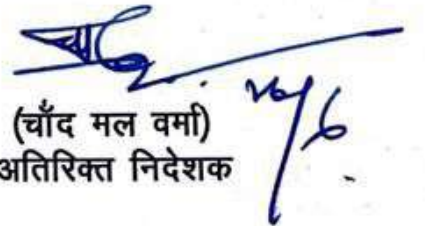 (चाँद मल वर्मा)
अतिरिक्त निदेशक